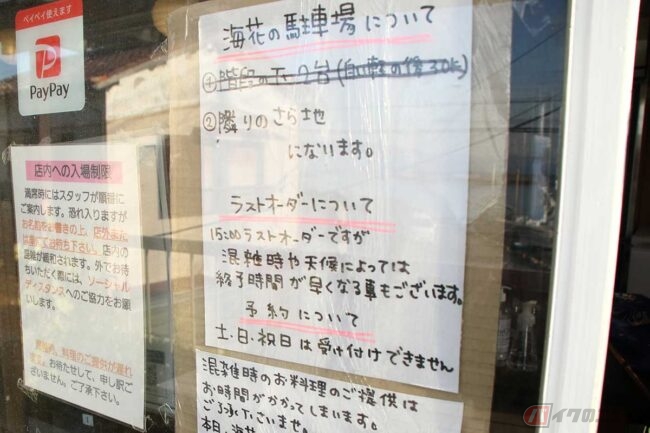 ペイペイ使えます
PayPay
店内への入場制限
満席時にはスタッフが順番に
ご案内します。恐れ入りますが
お名前をお書きの上、店外また
お待ち下さい。店内の
混雑が緩和されます。外でお待
ちいただく際には、ソーシャル
ディスタンスへのご協力をお願
いします。
料理のご提供が遅れ
お待たせして、申し訳ご
ざいません。ご了承下さい。
海花の駐車場について
① 階段の下 2台
② 隣りのさら地
にないます。
ラストオーダーについて
15:00ラストオーダーですが
混雑時や天候によっては
終了時間が早くなる事もございます。
予約について
土・日・祝日は受け付けできません
混雑時のお料理のご提供は
お時間がかかってしまいます。
ご了承下さいませ。
本日、海花
バイクの